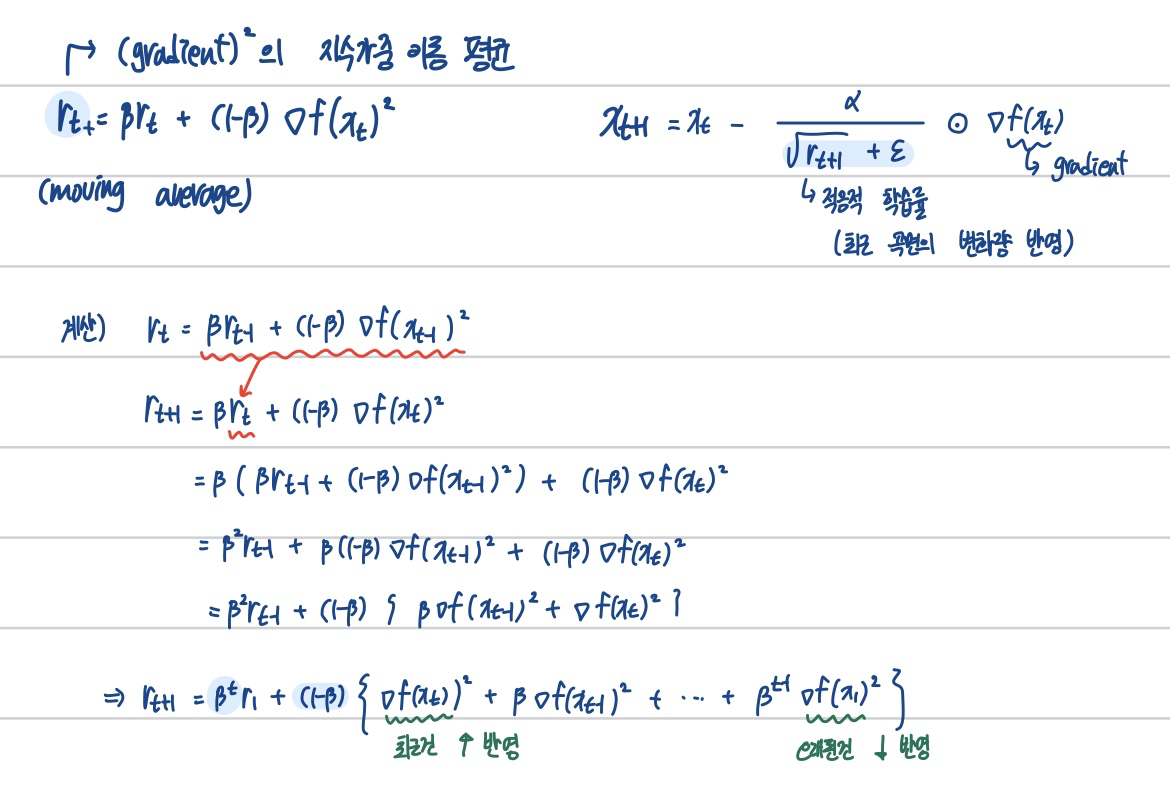 ↱ (gradient)²의 지수가중 이동 평균
r_{t+} = βr_t + (1-β) ∇f(x_t)²
(moving average)
x_{t+1} = x_t - α / (√r_{t+1} + ε) ⊙ ∇f(x_t)
↳ gradient
↳ 적응적 학습률
(최근 곡면의 변화량 반영)
계산) r_t = βr_{t-1} + (1-β) ∇f(x_{t-1})²
r_{t+1} = βr_t + (1-β) ∇f(x_t)²
= β ( βr_{t-1} + (1-β) ∇f(x_{t-1})² ) + (1-β) ∇f(x_t)²
= β²r_{t-1} + β(1-β) ∇f(x_{t-1})² + (1-β) ∇f(x_t)²
= β²r_{t-1} + (1-β) { β∇f(x_{t-1})² + ∇f(x_t)² }
⇒ r_{t+1} = β^t r_1 + (1-β) { ∇f(x_t))² + β∇f(x_{t-1})² + ⋯ + β^{t-1} ∇f(x_1)² }
최근건 ↑ 반영
오래된건 ↓ 반영